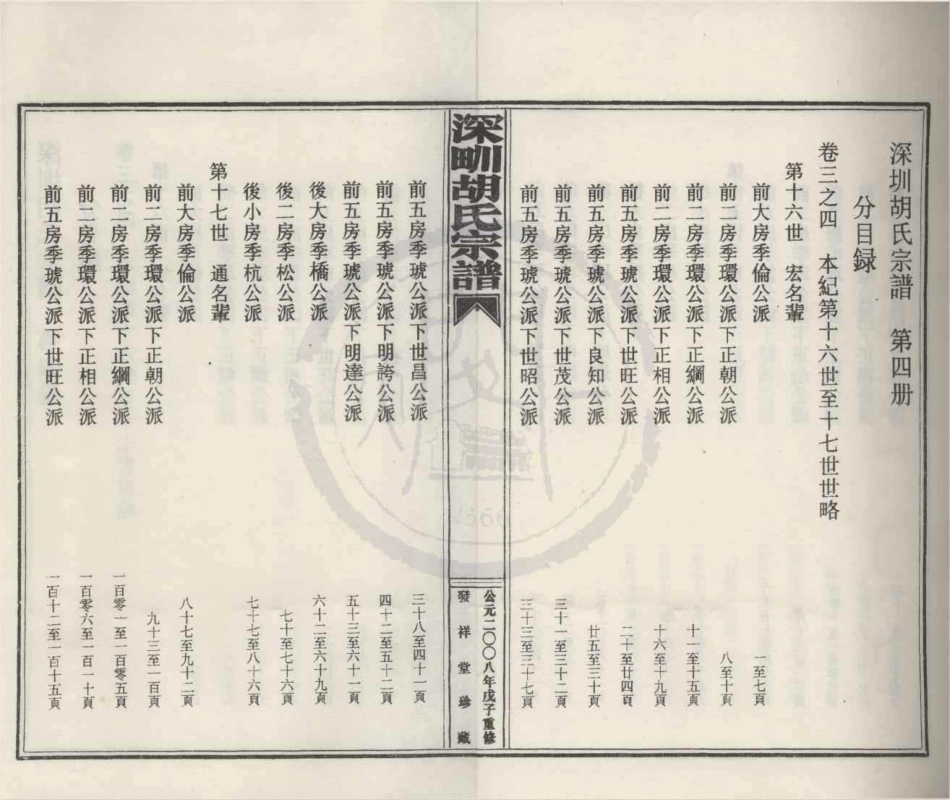 深圳胡氏宗譜　第四册
分目録
卷三之四　本紀第十六世至十七世世略
第十六世　宏名輩
前大房季倫公派　一至七頁
前二房季環公派下正朝公派　八至十頁
前二房季環公派下正綱公派　十一至十五頁
前二房季環公派下正相公派　十六至十九頁
前五房季琥公派下世旺公派　二十至廿四頁
前五房季琥公派下良知公派　廿五至三十頁
前五房季琥公派下世茂公派　三十一至三十二頁
前五房季琥公派下世昭公派　三十三至三十七頁
深圳胡氏宗譜
公元二〇〇八年戊子重修
發祥堂珍藏
前五房季琥公派下世昌公派　三十八至四十一頁
前五房季琥公派下明誇公派　四十二至五十二頁
前五房季琥公派下明達公派　五十三至六十一頁
後大房季橋公派　六十二至六十九頁
後二房季松公派　七十至七十六頁
後小房季杭公派　七十七至八十六頁
第十七世　通名輩
前大房季倫公派　八十七至九十二頁
前二房季環公派下正朝公派　九十三至一百頁
前二房季環公派下正綱公派　一百零一至一百零五頁
前二房季環公派下正相公派　一百零六至一百一十頁
前五房季琥公派下世旺公派　一百十二至一百十五頁